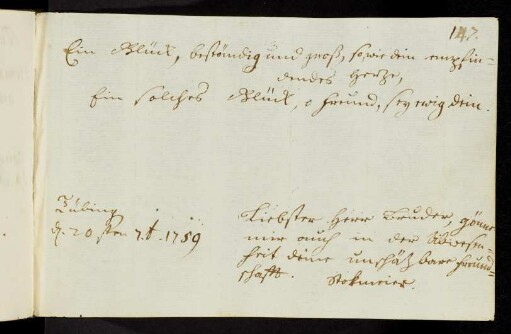 147.
Ein Glück, beständig und groß, sowie dein empfin=
dendes Hertze,
Ein solches Glück, o Freund, sey ewig dein.
Tübing
d. 20 sten 7.b. 1759
Liebster Herr Bruder, gönne
mir auch in der Abwesen=
heit deine unschätzbare Freund=
schafft. Stokmeier.